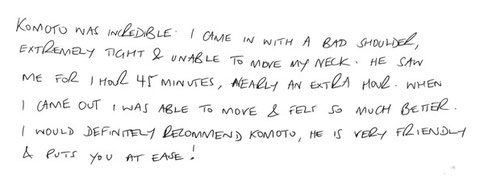 KOMOTO WAS INCREDIBLE. I CAME IN WITH A BAD SHOULDER,
EXTREMELY TIGHT & UNABLE TO MOVE MY NECK. HE SAW
ME FOR 1 HOUR 45 MINUTES, NEARLY AN EXTRA HOUR. WHEN
I CAME OUT I WAS ABLE TO MOVE & FELT SO MUCH BETTER.
I WOULD DEFINITELY RECOMMEND KOMOTO, HE IS VERY FRIENDLY
& PUTS YOU AT EASE!